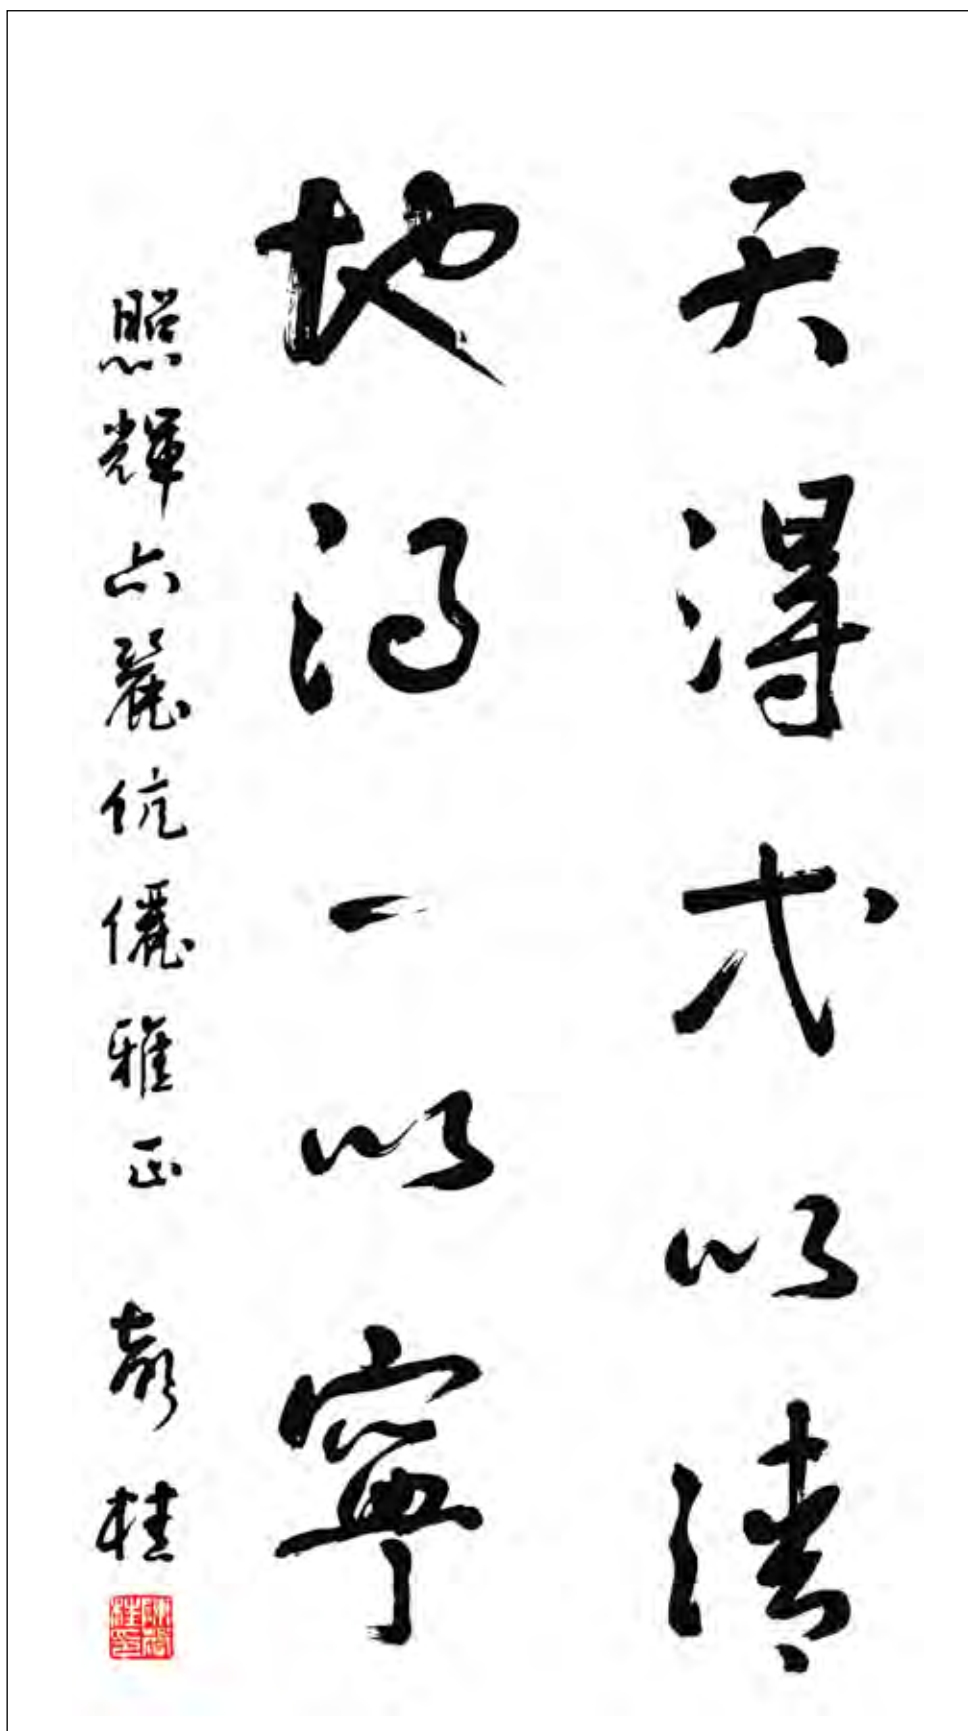 天得弌以清
地得一以寧
照輝小麗伉儷雅正 鼓桂